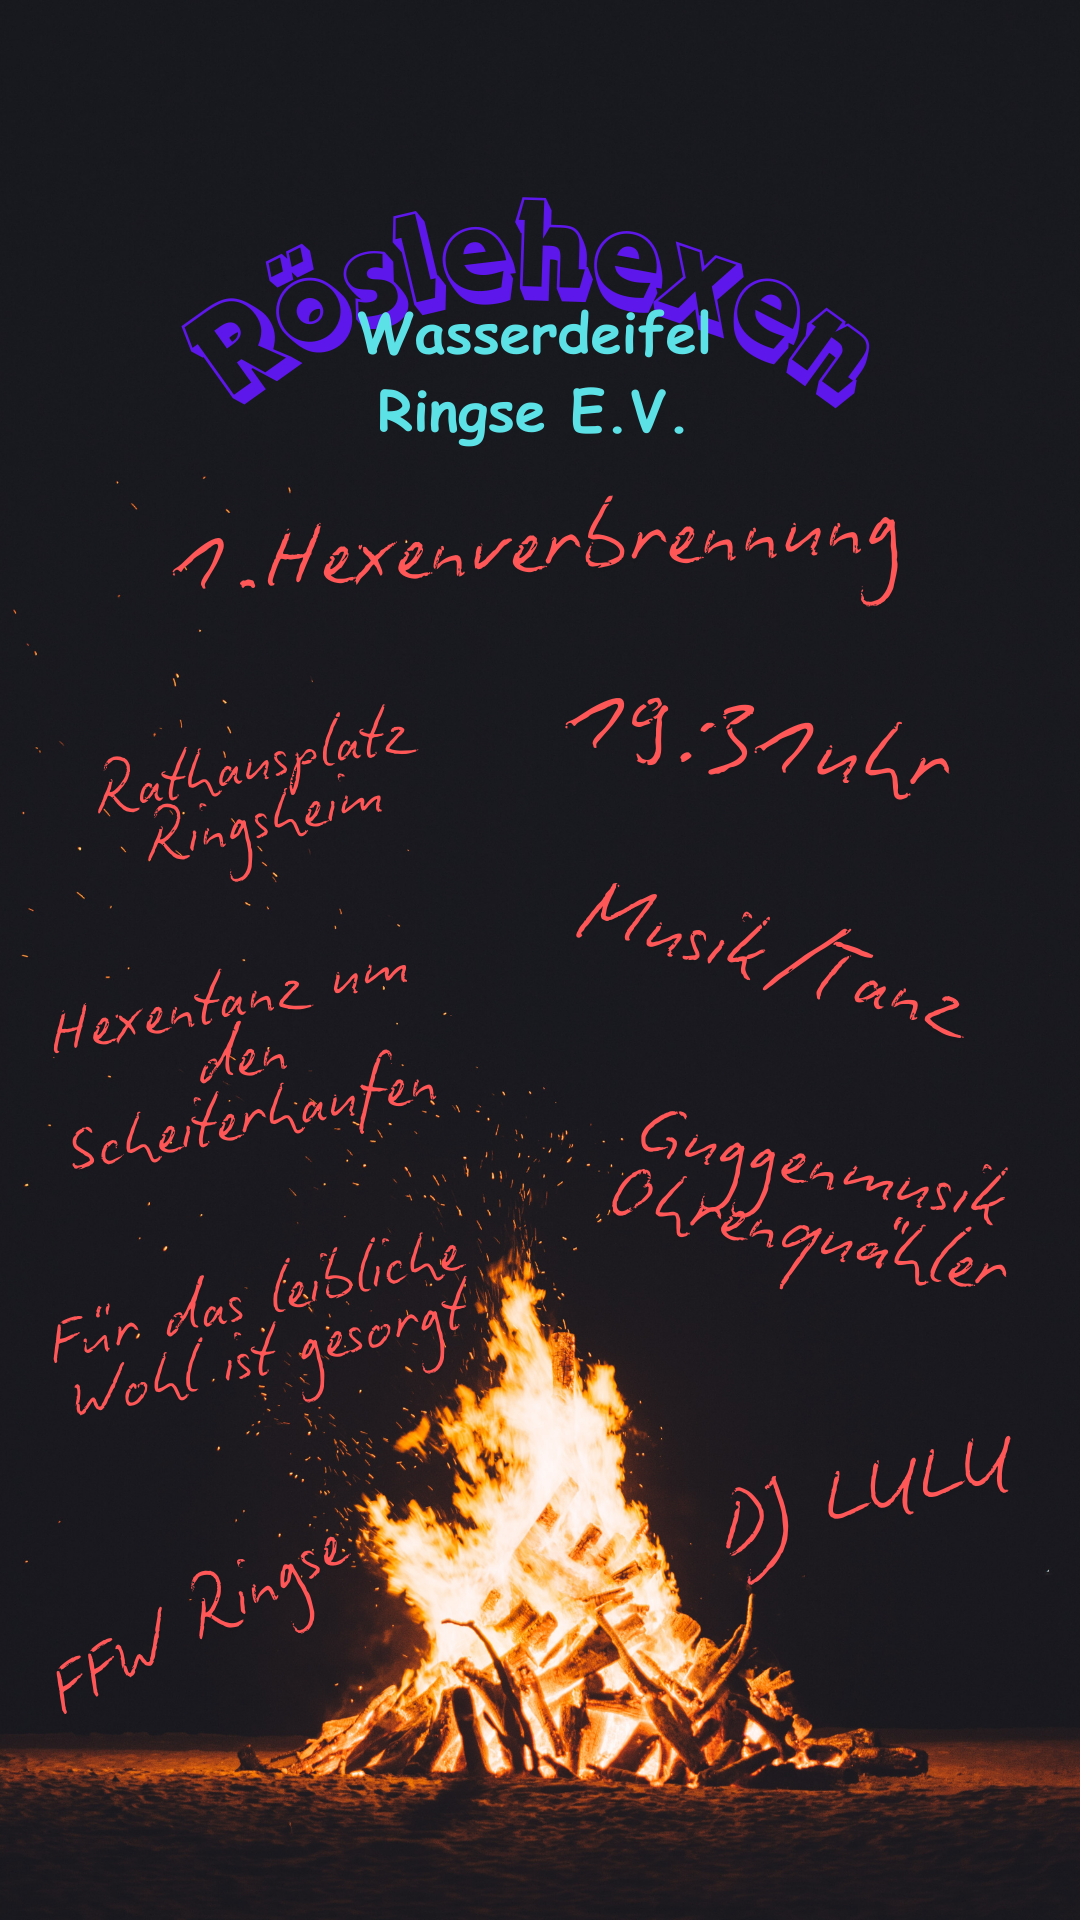 Röslehexen
Wasserdeifel
Ringse E.V.
1.Hexenverbrennung
Rathausplatz
Ringsheim
19:31uhr
Musik/Tanz
Hexentanz um
den
Scheiterhaufen
Guggenmusik
Ohrenquähler
Für das leibliche
Wohl ist gesorgt
DJ LULU
FFW Ringse